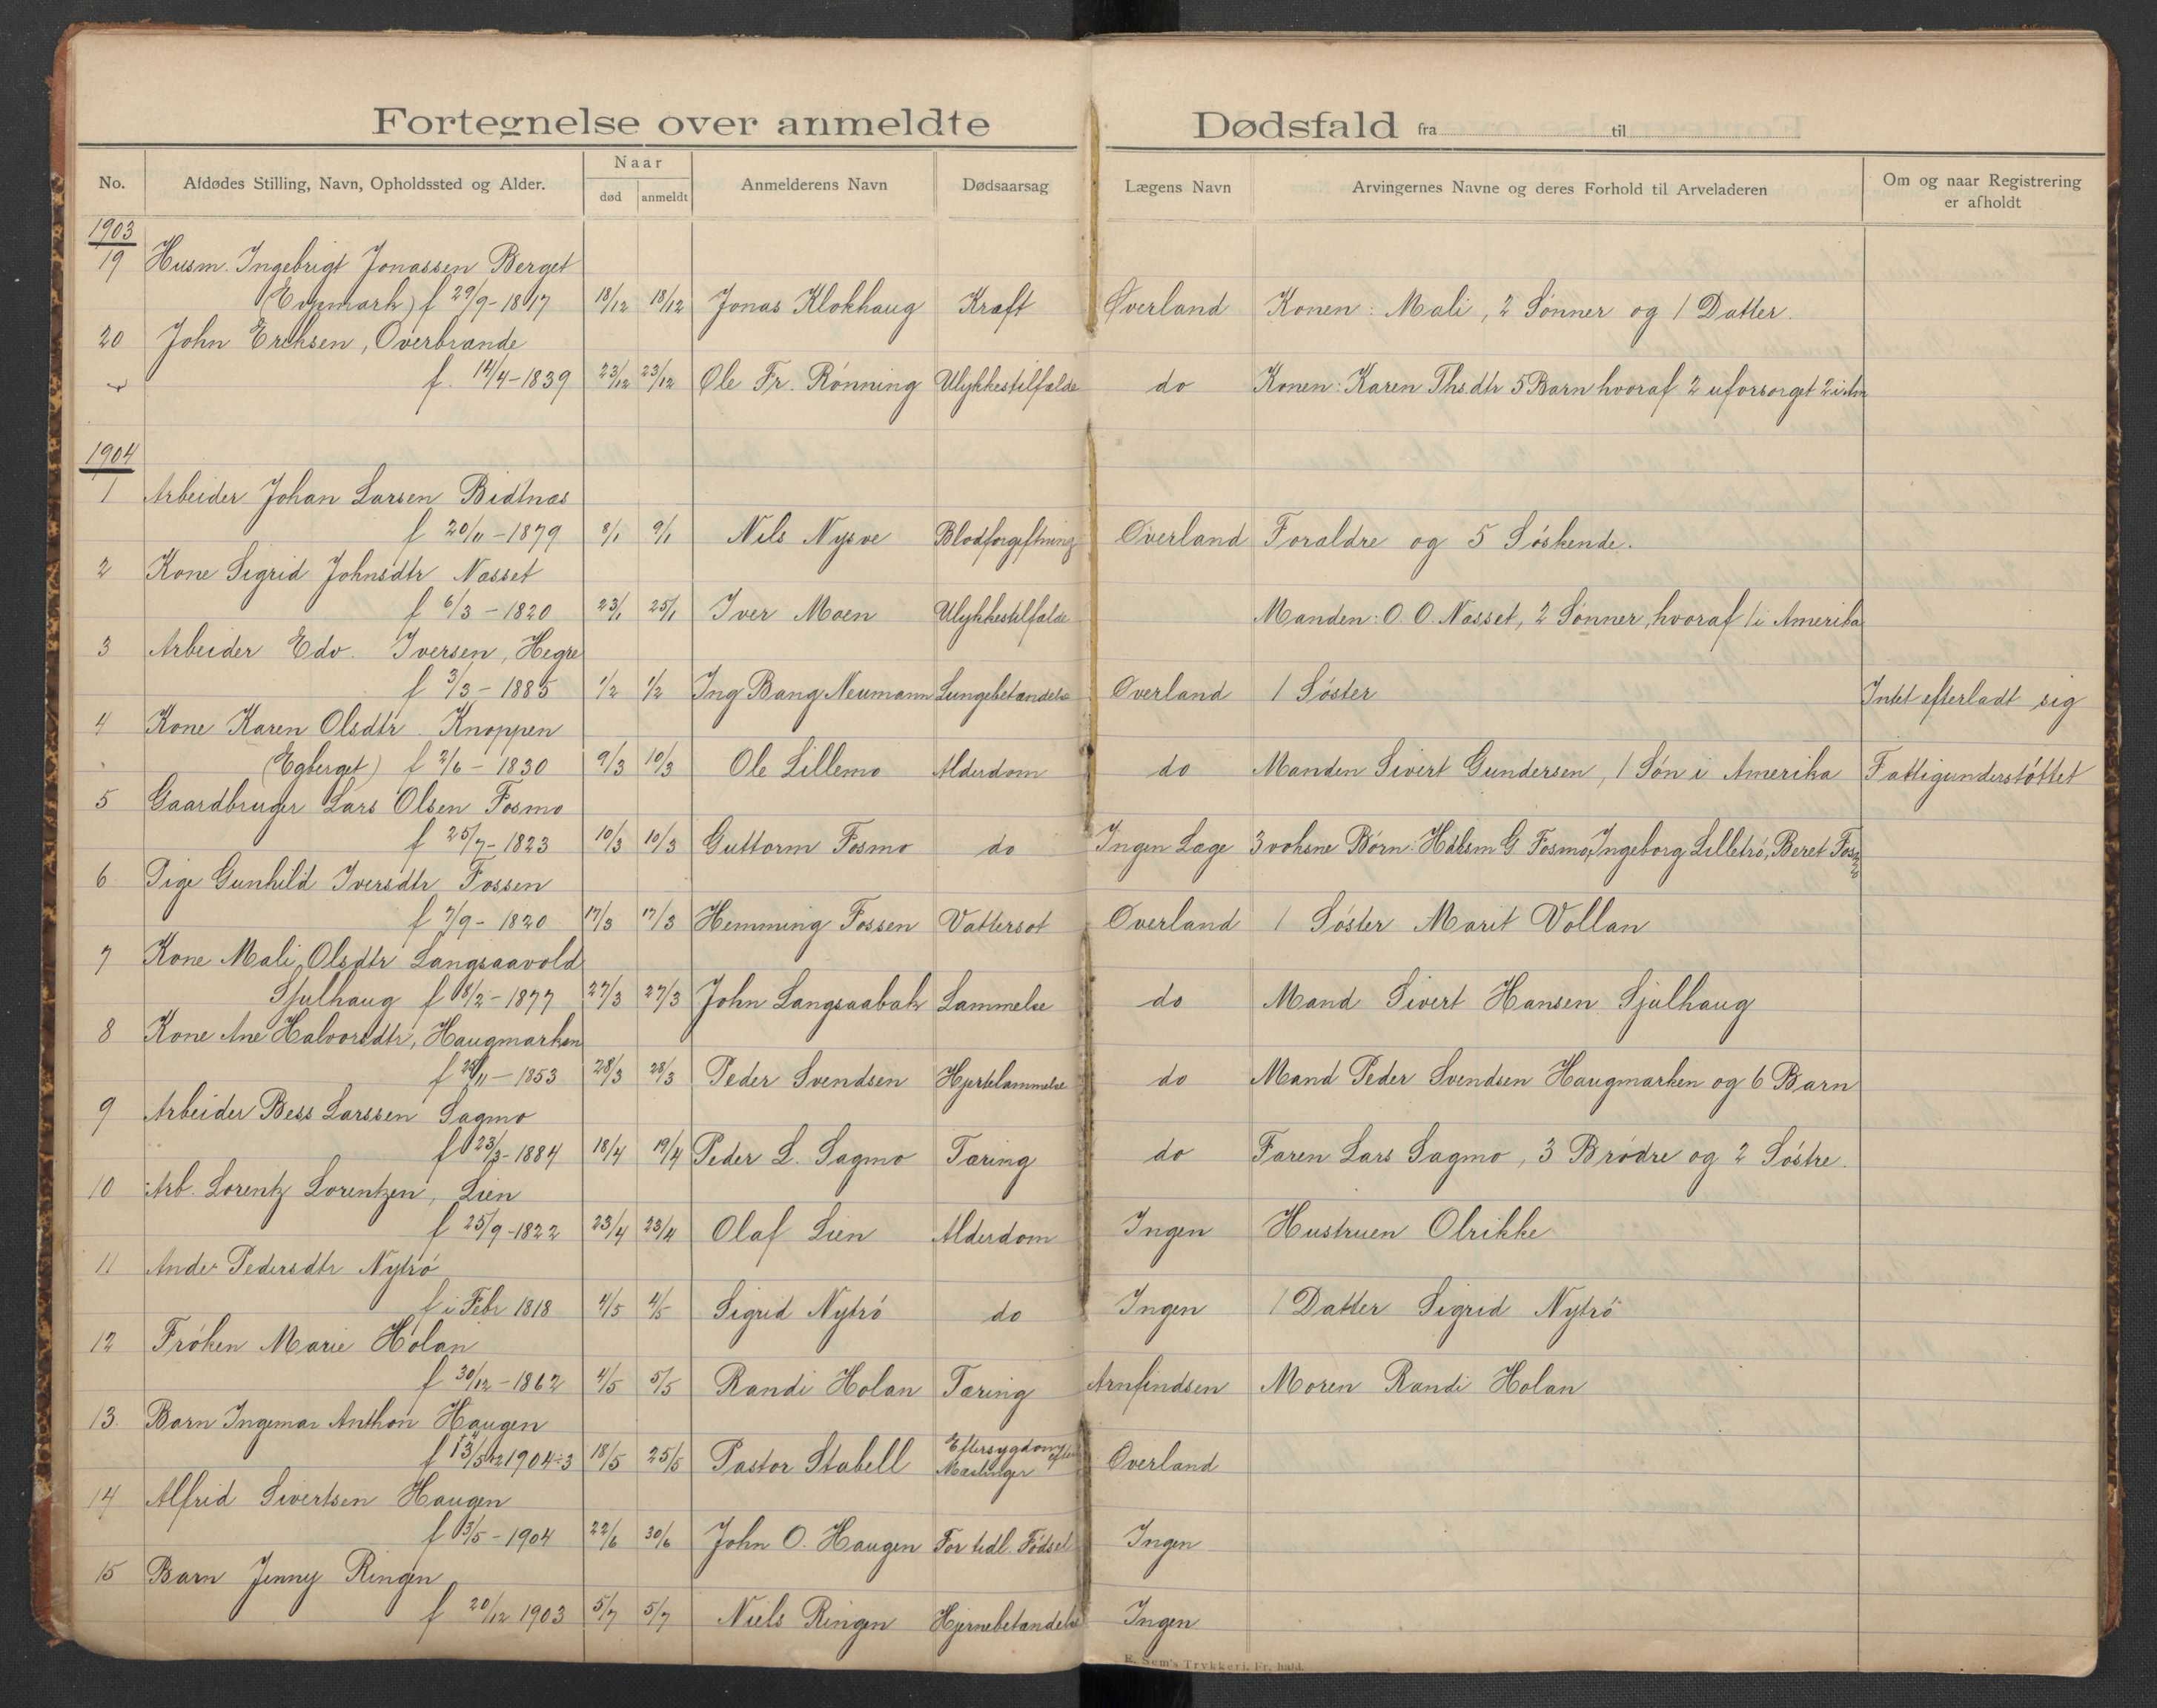 Fortegnelse over anmeldte Dødsfald fra til
No. Afdødes Stilling, Navn, Opholdssted og Alder. Naar død anmeldt Anmelderens Navn Dødsaarsag Lægens Navn Arvingernes Navne og deres Forhold til Arveladeren Om og naar Registrering er afholdt
1903
19 Husm. Ingebrigt Jonassen Berget
f 29/9-1817 18/12 18/12 Jonas Klokhaug Kraft Øverland Konen: Mali, 2 Sønner og 1 Datter.
20 John Eriksen, Overbrande
f. 14/4-1839 23/12 23/12 Ole Fr. Rønning Ulykkestilfalde do Konen: Karen Thsdtr 5 Barn hvoraf 2 uforsorget 2 i Am
1904
1 Arbeider Johan Larsen Bidtnas
f 20/11-1879 8/1 9/1 Nils Nysve Blodforgiftning Øverland Foraldre og 5 Søskende.
2 Kone Sigrid Johnsdtr Nasset
f 6/3-1820 23/1 25/1 Iver Moen Ulykkestilfalde Manden: O. O. Nasset, 2 Sønner, hvoraf 1 i Amerika
3 Arbeider Edv. Iversen, Hegre
f 3/3-1885 1/2 1/2 Ing Bang Neumann Lungebetandelse Øverland 1 Søster Intet efterladt sig
4 Kone Karen Olsdtr. Knoppen
(Egberget) f 2/6-1830 9/3 10/3 Ole Lillemo Alderdom do Manden Sivert Gundersen, 1 Søn i Amerika Fattigunderstøttet
5 Gaardbruger Lars Olsen Fosmo
f 25/7-1823 10/3 10/3 Guttorm Fosmo do Ingen Læge 3 voksne Børn: G Fosmo, Ingeborg Lilletrø, Beret Fosmo
6 Pige Gunhild Iversdtr Fossen
f 7/9-1820 17/3 17/3 Hemming Fossen Vattersot Øverland 1 Søster Marit Vollan
7 Kone Mali Olsdtr Langsaavold
Sjulhaug f 18/2-1877 27/3 27/3 John Langsaabak Lammelse do Mand Sivert Hansen Sjulhaug
8 Kone Ane Halvorsdtr, Haugmarken
f 29/11-1853 28/3 28/3 Peder Svendsen Hjertelammelse do Mand Peder Svendsen Haugmarken og 6 Barn
9 Arbeider Bess Larssen Sagmo
f 23/3-1884 18/4 19/4 Peder L. Sagmo Taring do Faren Lars Sagmo, 3 Brødre og 2 Søstre.
10 Arb. Lorentz Lorentzen, Lien
f 25/9-1822 23/4 23/4 Olaf Lien Alderdom Ingen Hustruen Olrikke
11 Pedersdtr Nytrø
f i Febr 1818 4/5 4/5 Sigrid Nytrø do Ingen 1 Datter Sigrid Nytrø
12 Frøken Marie Holan
f 30/12-1862 4/5 5/5 Randi Holan Taring Arnfindsen Moren Randi Holan
13 Barn Ingemar Anthon Haugen
18/5 25/5 Pastor Stabell Eftersygdom efter Mæslinger Øverland
14 Alfrid Sivertsen Haugen
f 13/5-1904 22/6 30/6 John O. Haugen For tidl. Fødsel Ingen
15 Barn Jenny Ringen
f 20/12 1903 5/7 5/7 Niels Ringen Hjernebetandelse Ingen
E. Sem's Trykkeri, Fr. hald.